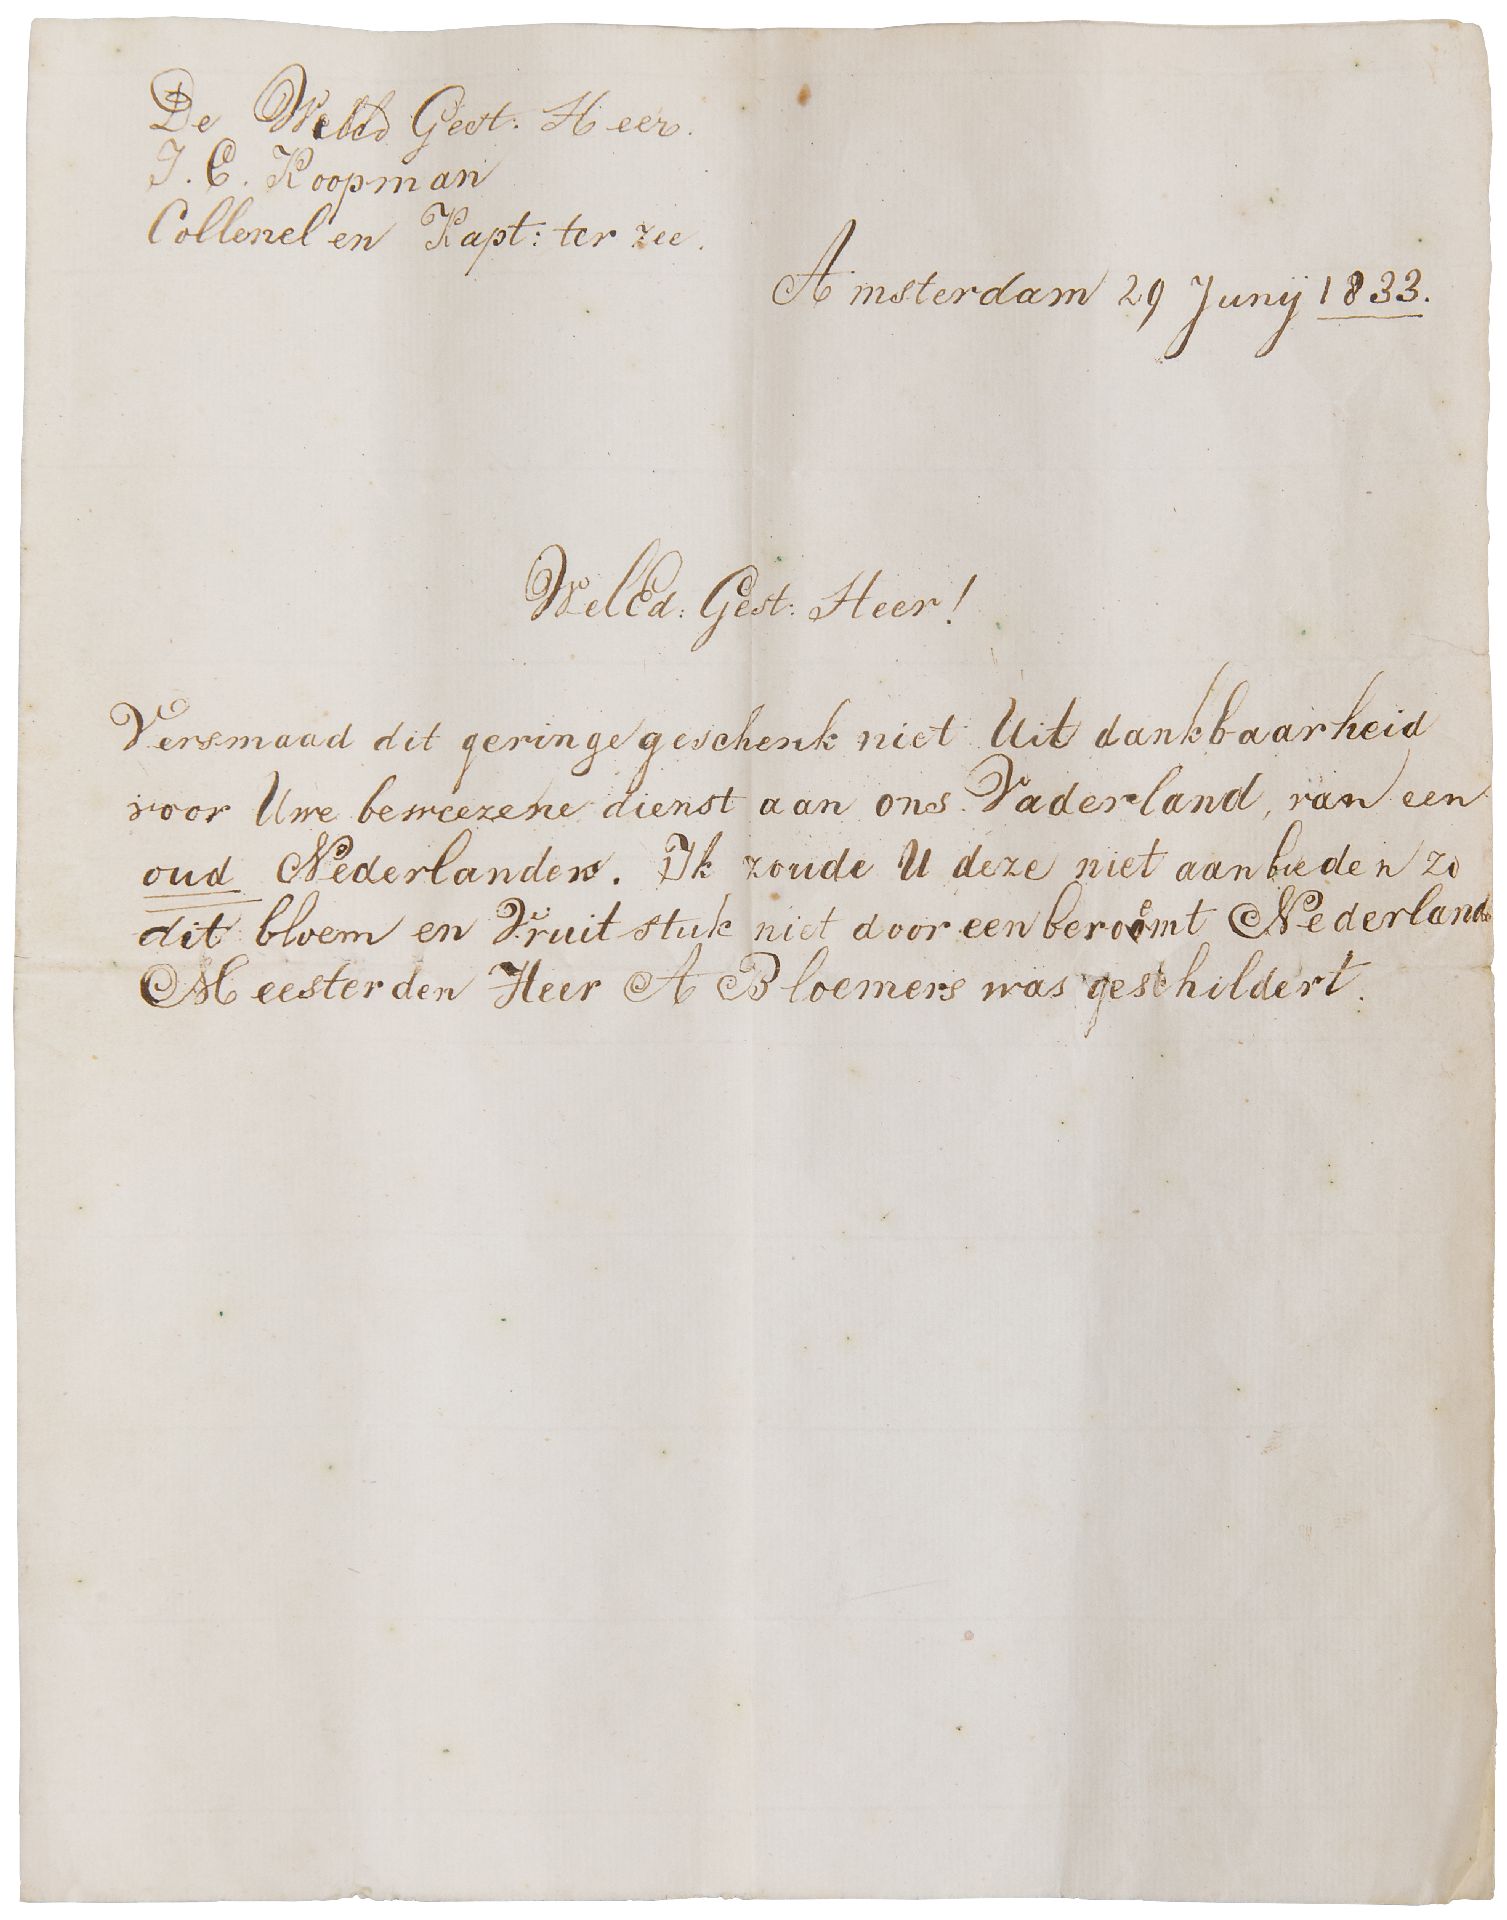 De WelEd Gest: Heer.
J. E. Koopman
Collonel en Kapt: ter zee.
Amsterdam 29 Junÿ 1833.
WelEd: Gest: Heer!
Versmaad dit geringe geschenk niet Uit dankbaarheid
voor Uwe beweezene dienst aan ons Vaderland, van een
oud Nederlander. Ik zoude U deze niet aanbieden zo
dit bloem en Vruit stuk niet door een beroemt Nederlands
Meester den Heer A Bloemers was geschildert.